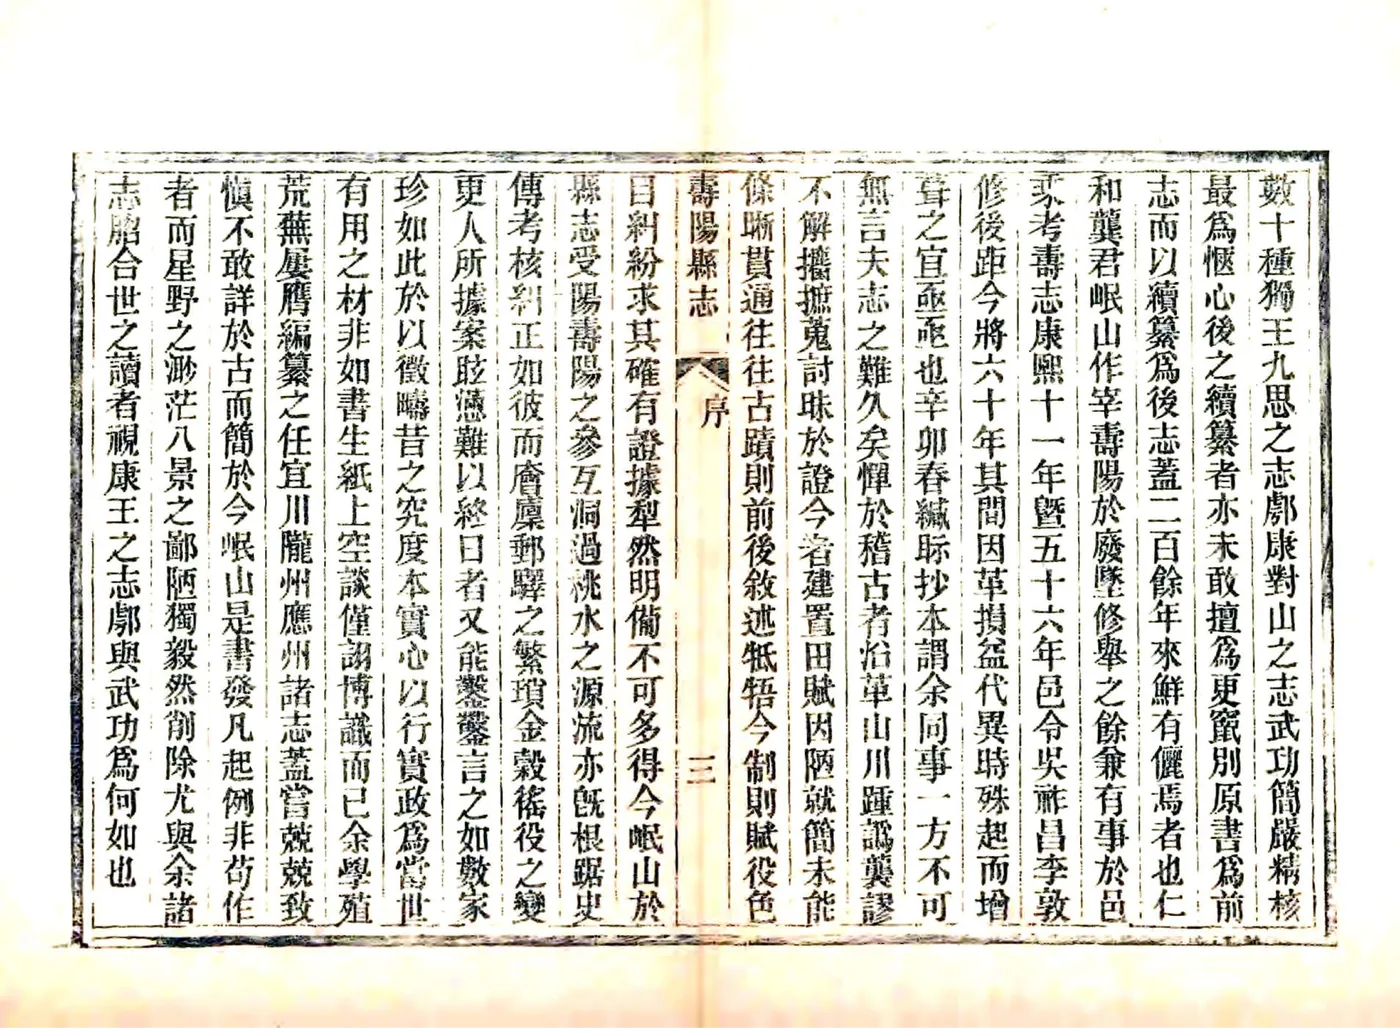 數十種獨王九思之志鄠康對山之志武功簡嚴精核
最爲愜心後之續纂者亦未敢擅爲更竄別原書爲前
志而以續纂爲後志蓋二百餘年來鮮有儷焉者也仁
和龔君岷山作宰壽陽於廢墜修舉之餘兼有事於邑
乘考壽志康熙十一年曁五十六年邑令吳祚昌李敦
修後距今將六十年其間因革損益代異時殊起而增
葺之宜亟亟也辛卯春緘眎抄本謂余同事一方不可
無言夫志之難久矣憚於稽古者沿革山川踵譌襲謬
不解攟摭蒐討昧於證今者建置田賦因陋就簡未能
條晣貫通往往古蹟則前後敘述牴牾今制則賦役色
壽陽縣志
序
三
目糾紛求其確有證據犁然明備不可多得今岷山於
縣志受陽壽陽之參互洞過桃水之源流亦旣根踞史
傳考核糾正如彼而廥廩郵驛之繁瑣金穀徭役之變
更人所據案眩懣難以終日者又能鑿鑿言之如數家
珍如此於以徵疇昔之究度本實心以行實政爲當世
有用之材非如書生紙上空談僅詡博識而已余學殖
荒蕪屢膺編纂之任宜川隴州應州諸志蓋嘗兢兢致
愼不敢詳於古而簡於今岷山是書發凡起例非苟作
者而星野之渺茫八景之鄙陋獨毅然削除尤與余諸
志脗合世之讀者視康王之志鄠與武功爲何如也